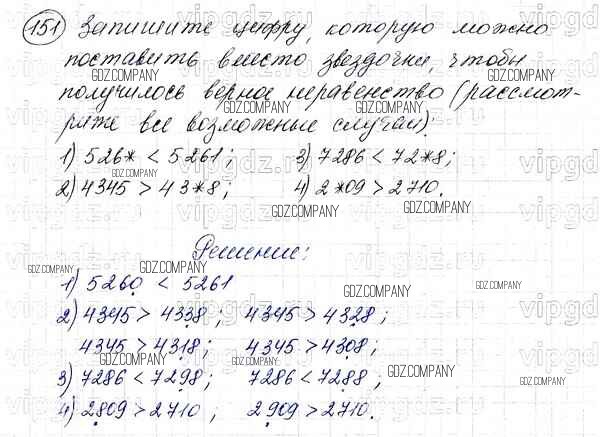 151 Запишите цифру, которую можно
поставить вместо звездочки, чтобы
получилось верное неравенство (рассмот-
рите все возможные случаи).
1) 526* < 5261; 3) 7286 < 72*8;
2) 4345 > 43*8; 4) 2*09 > 2710.
Решение:
1) 5260 < 5261
2) 4345 > 4338; 4345 > 4328;
4345 > 4318; 4345 > 4308;
3) 7286 < 7298; 7286 < 7288,
4) 2809 > 2710; 2909 > 2710.